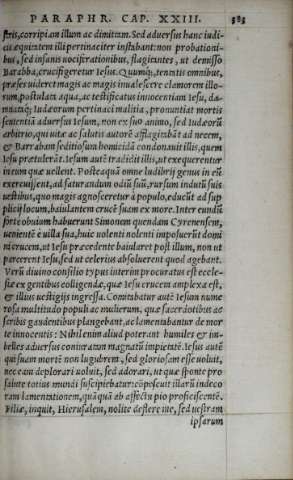 PARAPHR. CAP. XXIII. 383
stris, corripiam illum ac dimittam. Sed aduersus hanc iudi-
cis æquitatem illi pertinaciter instabant: non probationi-
bus, sed insanis uociferationibus, flagitantes, ut demisso
Barabba, crucifigeretur Iesus. Quumq́; tentatis omnibus,
præses uideret magis ac magis inualescere clamorem illo-
rum, postulata aqua, ac testificatus innocentiam Iesu, da-
mnataq́; Iudæorum pertinaci malitia, pronuntiat mortis
sententiã aduersus Iesum, non ex suo animo, sed Iudæorũ
arbitrio, qui uitæ ac salutis autorẽ afflagitabãt ad necem,
& Barrabam seditiosum homicidã condonauit illis, quem
Iesu prætulerãt. Iesum autẽ tradidit illis, ut exequerentur
in eum quæ uellent. Postea quàm omne ludibrij genus in eũ
exercuissent, ad saturandum odiũ suũ, rursum indutũ suis
uestibus, quo magis agnosceretur à populo, educũt ad sup
plicij locum, baiulantem crucẽ suam ex more. Inter eundũ
forte obuiam habuerunt Simonem quendam Cyrenensem,
uenientẽ è uilla sua, huic uolenti nolenti imposuerũt domi
ni crucem, ut Iesu præcedente baiularet post illum, non ut
parcerent Iesu, sed ut celerius absoluerent quod agebant.
Verũ diuino consilio typus interim procuratus est eccle-
siæ ex gentibus colligendæ, quæ Iesu crucem amplexa est,
& illius uestigijs ingressa. Comitabatur autẽ Iesum nume
rosa multitudo populi ac mulierum, quæ sacerdotibus ac
scribis gaudentibus plangebant, ac lamentabantur de mor
te innocentis: Nihil enim aliud poterant humiles & im-
belles aduersus coniuratam magnatũ impietatẽ. Iesus autẽ
qui suam mortẽ non lugubrem, sed gloriosam esse uoluit,
nec eam deplorari uoluit, sed adorari, ut quæ sponte pro
salute totius mundi suscipiebatur: cõpescuit illarũ indeco
ram lamentationem, quãquã ab affectu pio proficiscentẽ.
Filiæ, inquit, Hierusalem, nolite deflere me, sed uestram
ipsarum